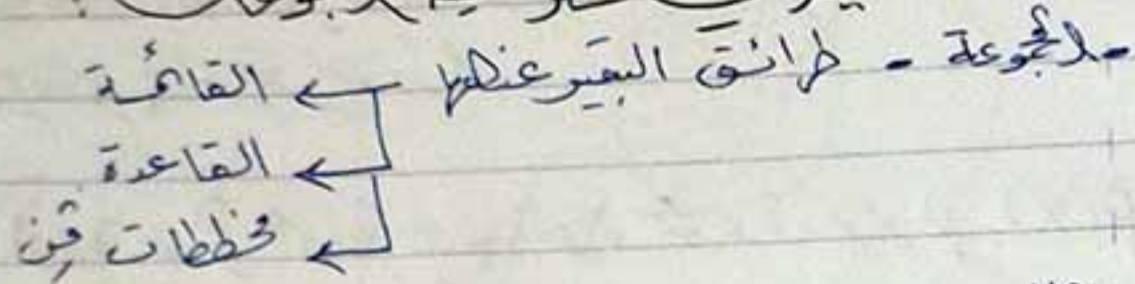 - المجموعة - طرائق التعبير عنها ← القائمة
← القاعدة
← مخططات ڤن